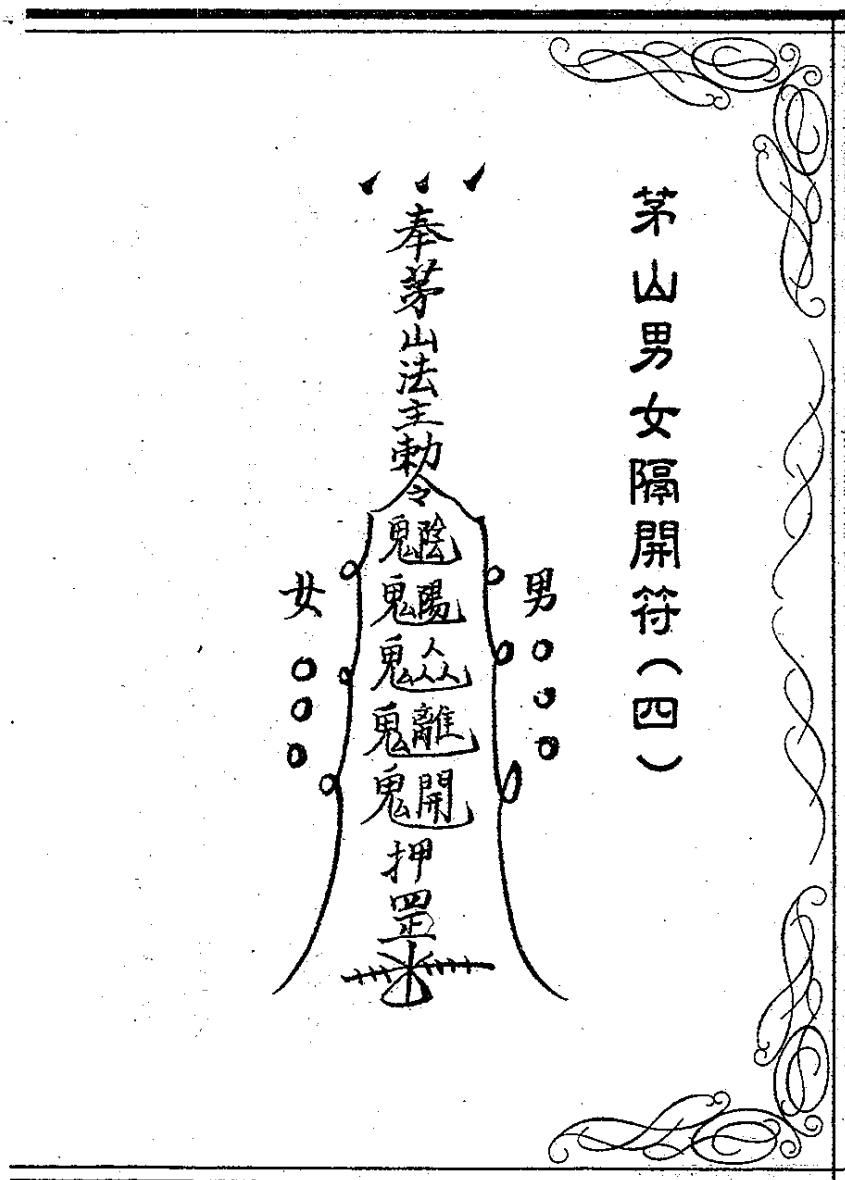 茅山男女隔開符（四）
奉茅山法主勅令
鬼陰
鬼陽
鬼众
鬼離
鬼開
押罡
男
女